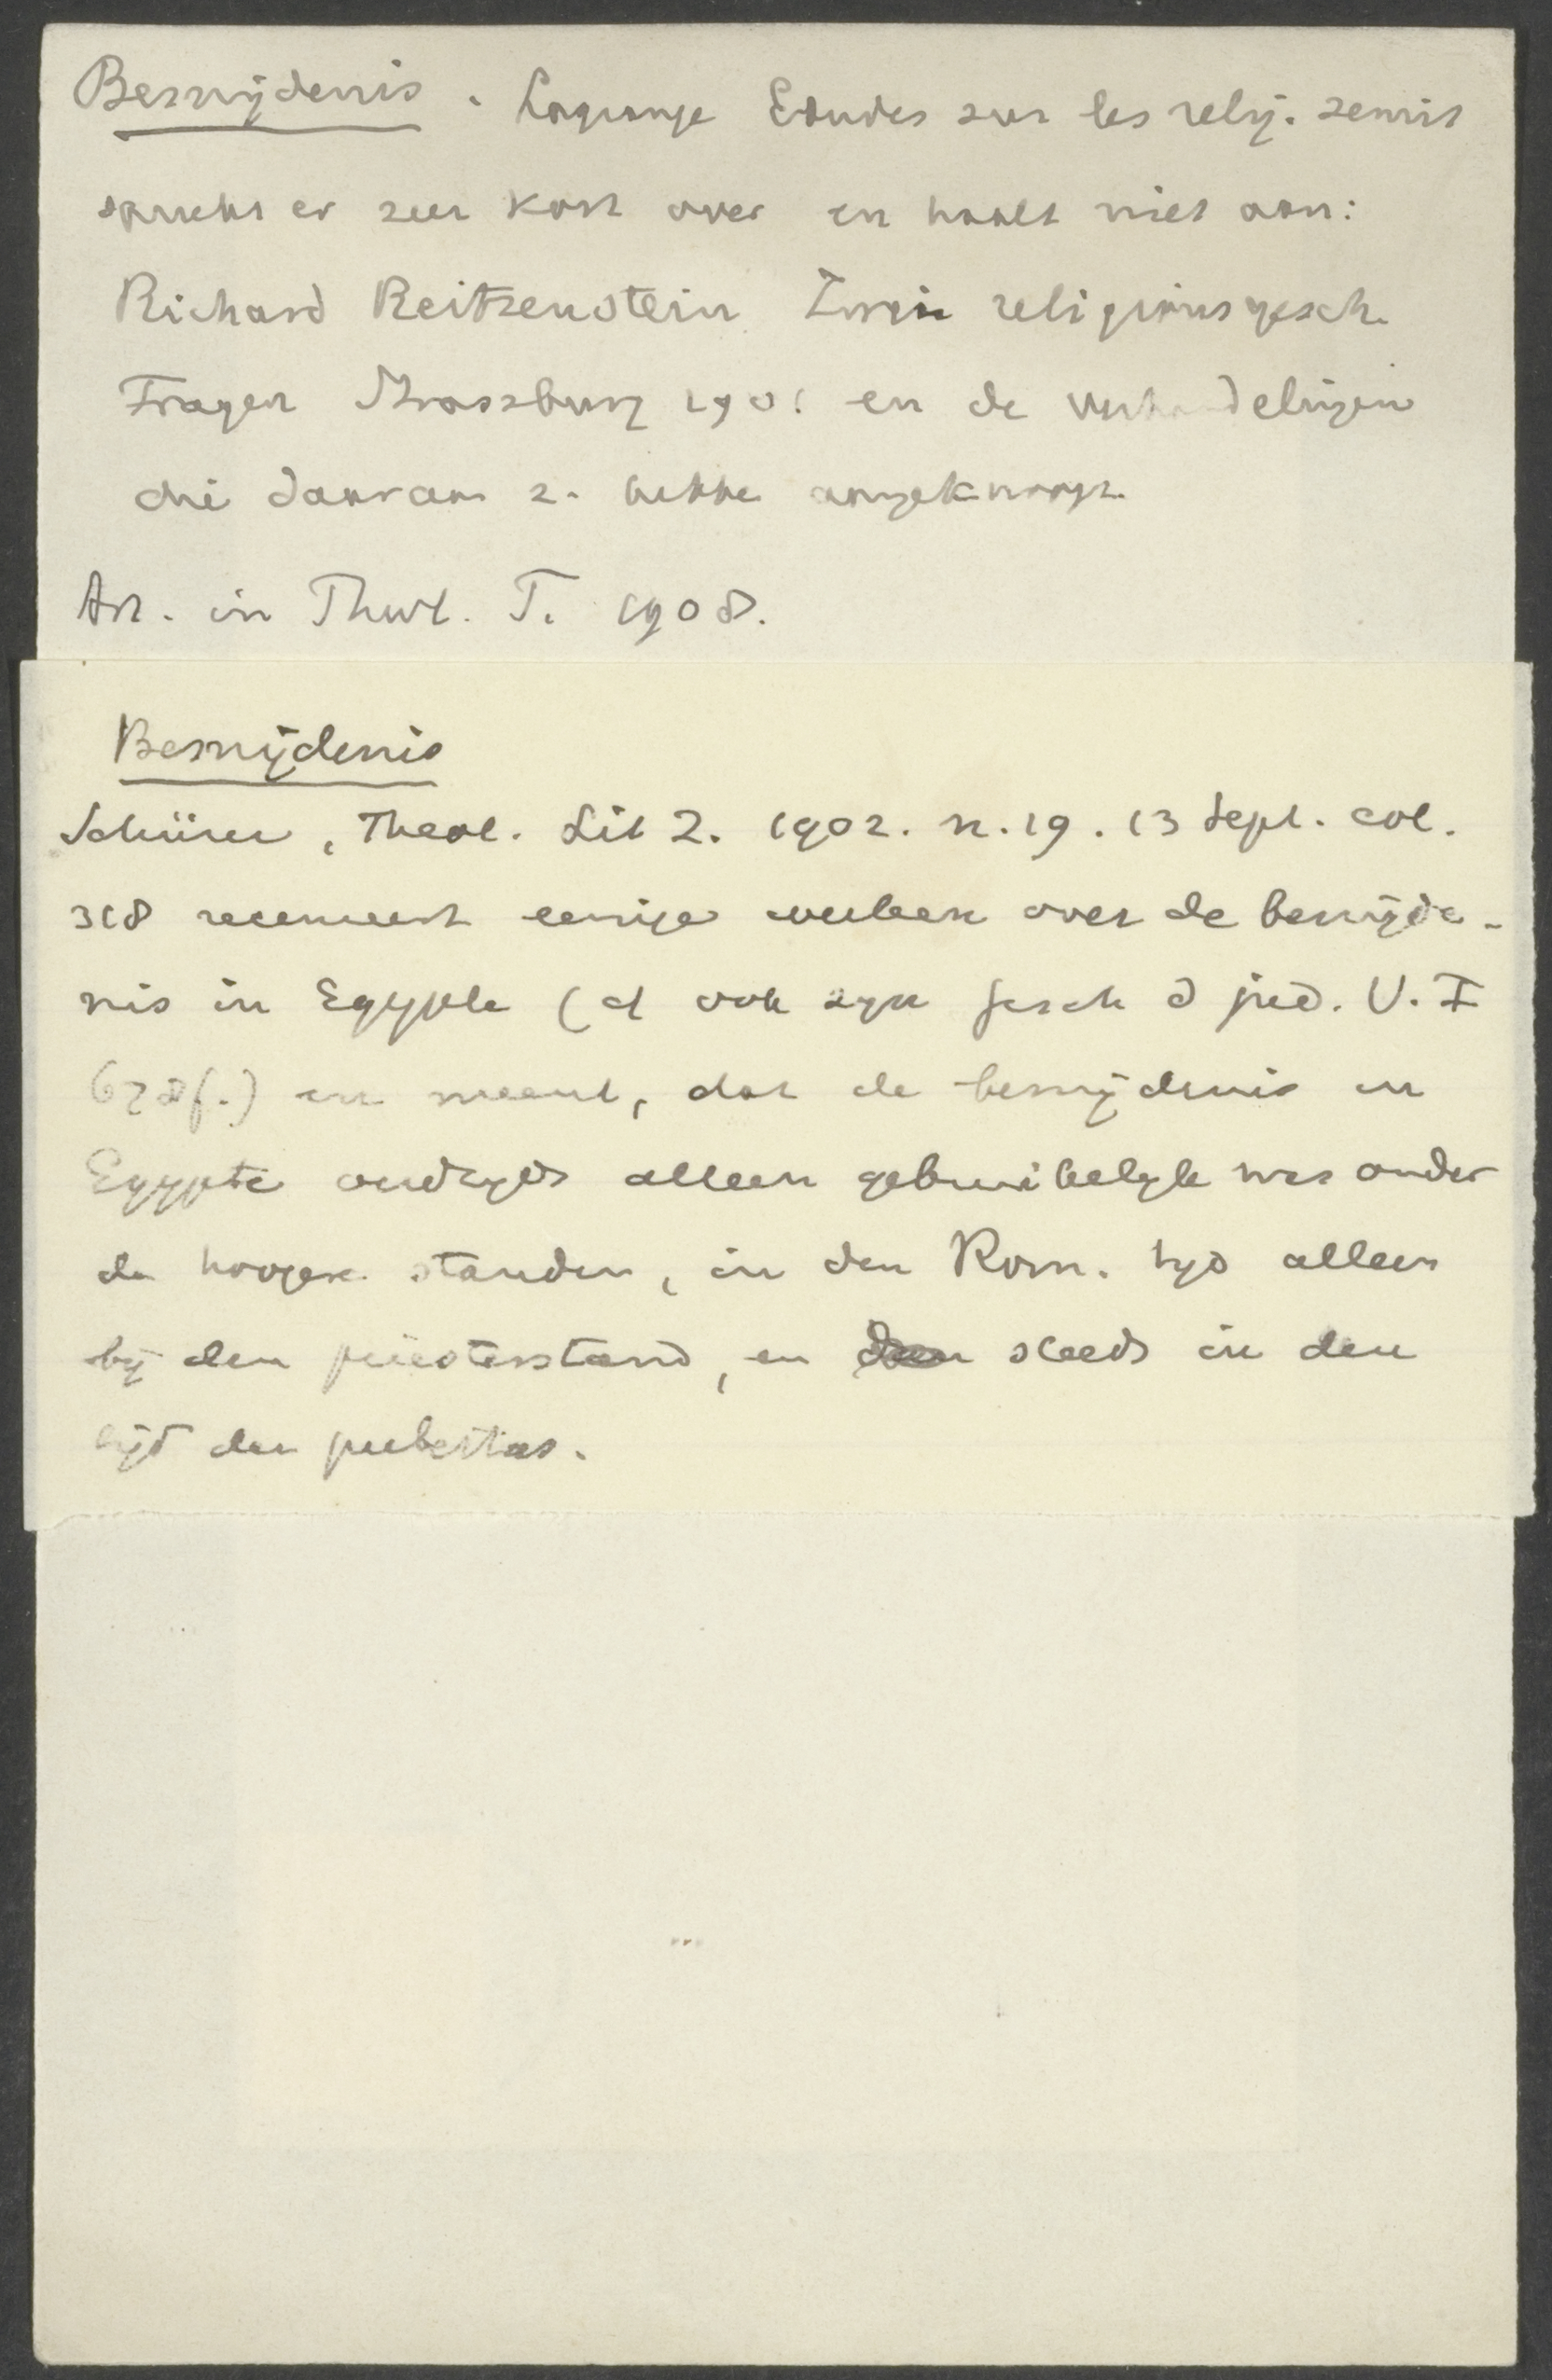 Besnijdenis. Lagrange Etudes sur les relig. semit
spreekt er zeer kort over en haalt niet aan:
Richard Reitzenstein Zwei religionsgesch.
Fragen Strassburg 1901 en de verhandelingen
die daaraan z. hebbe angeknoopt.
Art. in Theol. T. 1908.
Besnijdenis
Schürer, Theol. Lit Z. 1902. n. 19. 13 Sept. col.
518 recenseert eenige werken over de besnijde-
nis in Egypte (cf ook zijn Gesch d jüd. V. I
678f.) en meent, dat de besnijdenis in
Egypte oudtijds alleen gebruikelijk was onder
de hoogere standen, in den Rom. tijd alleen
bij den priesterstand, en steeds in den
tijd der pubertas.